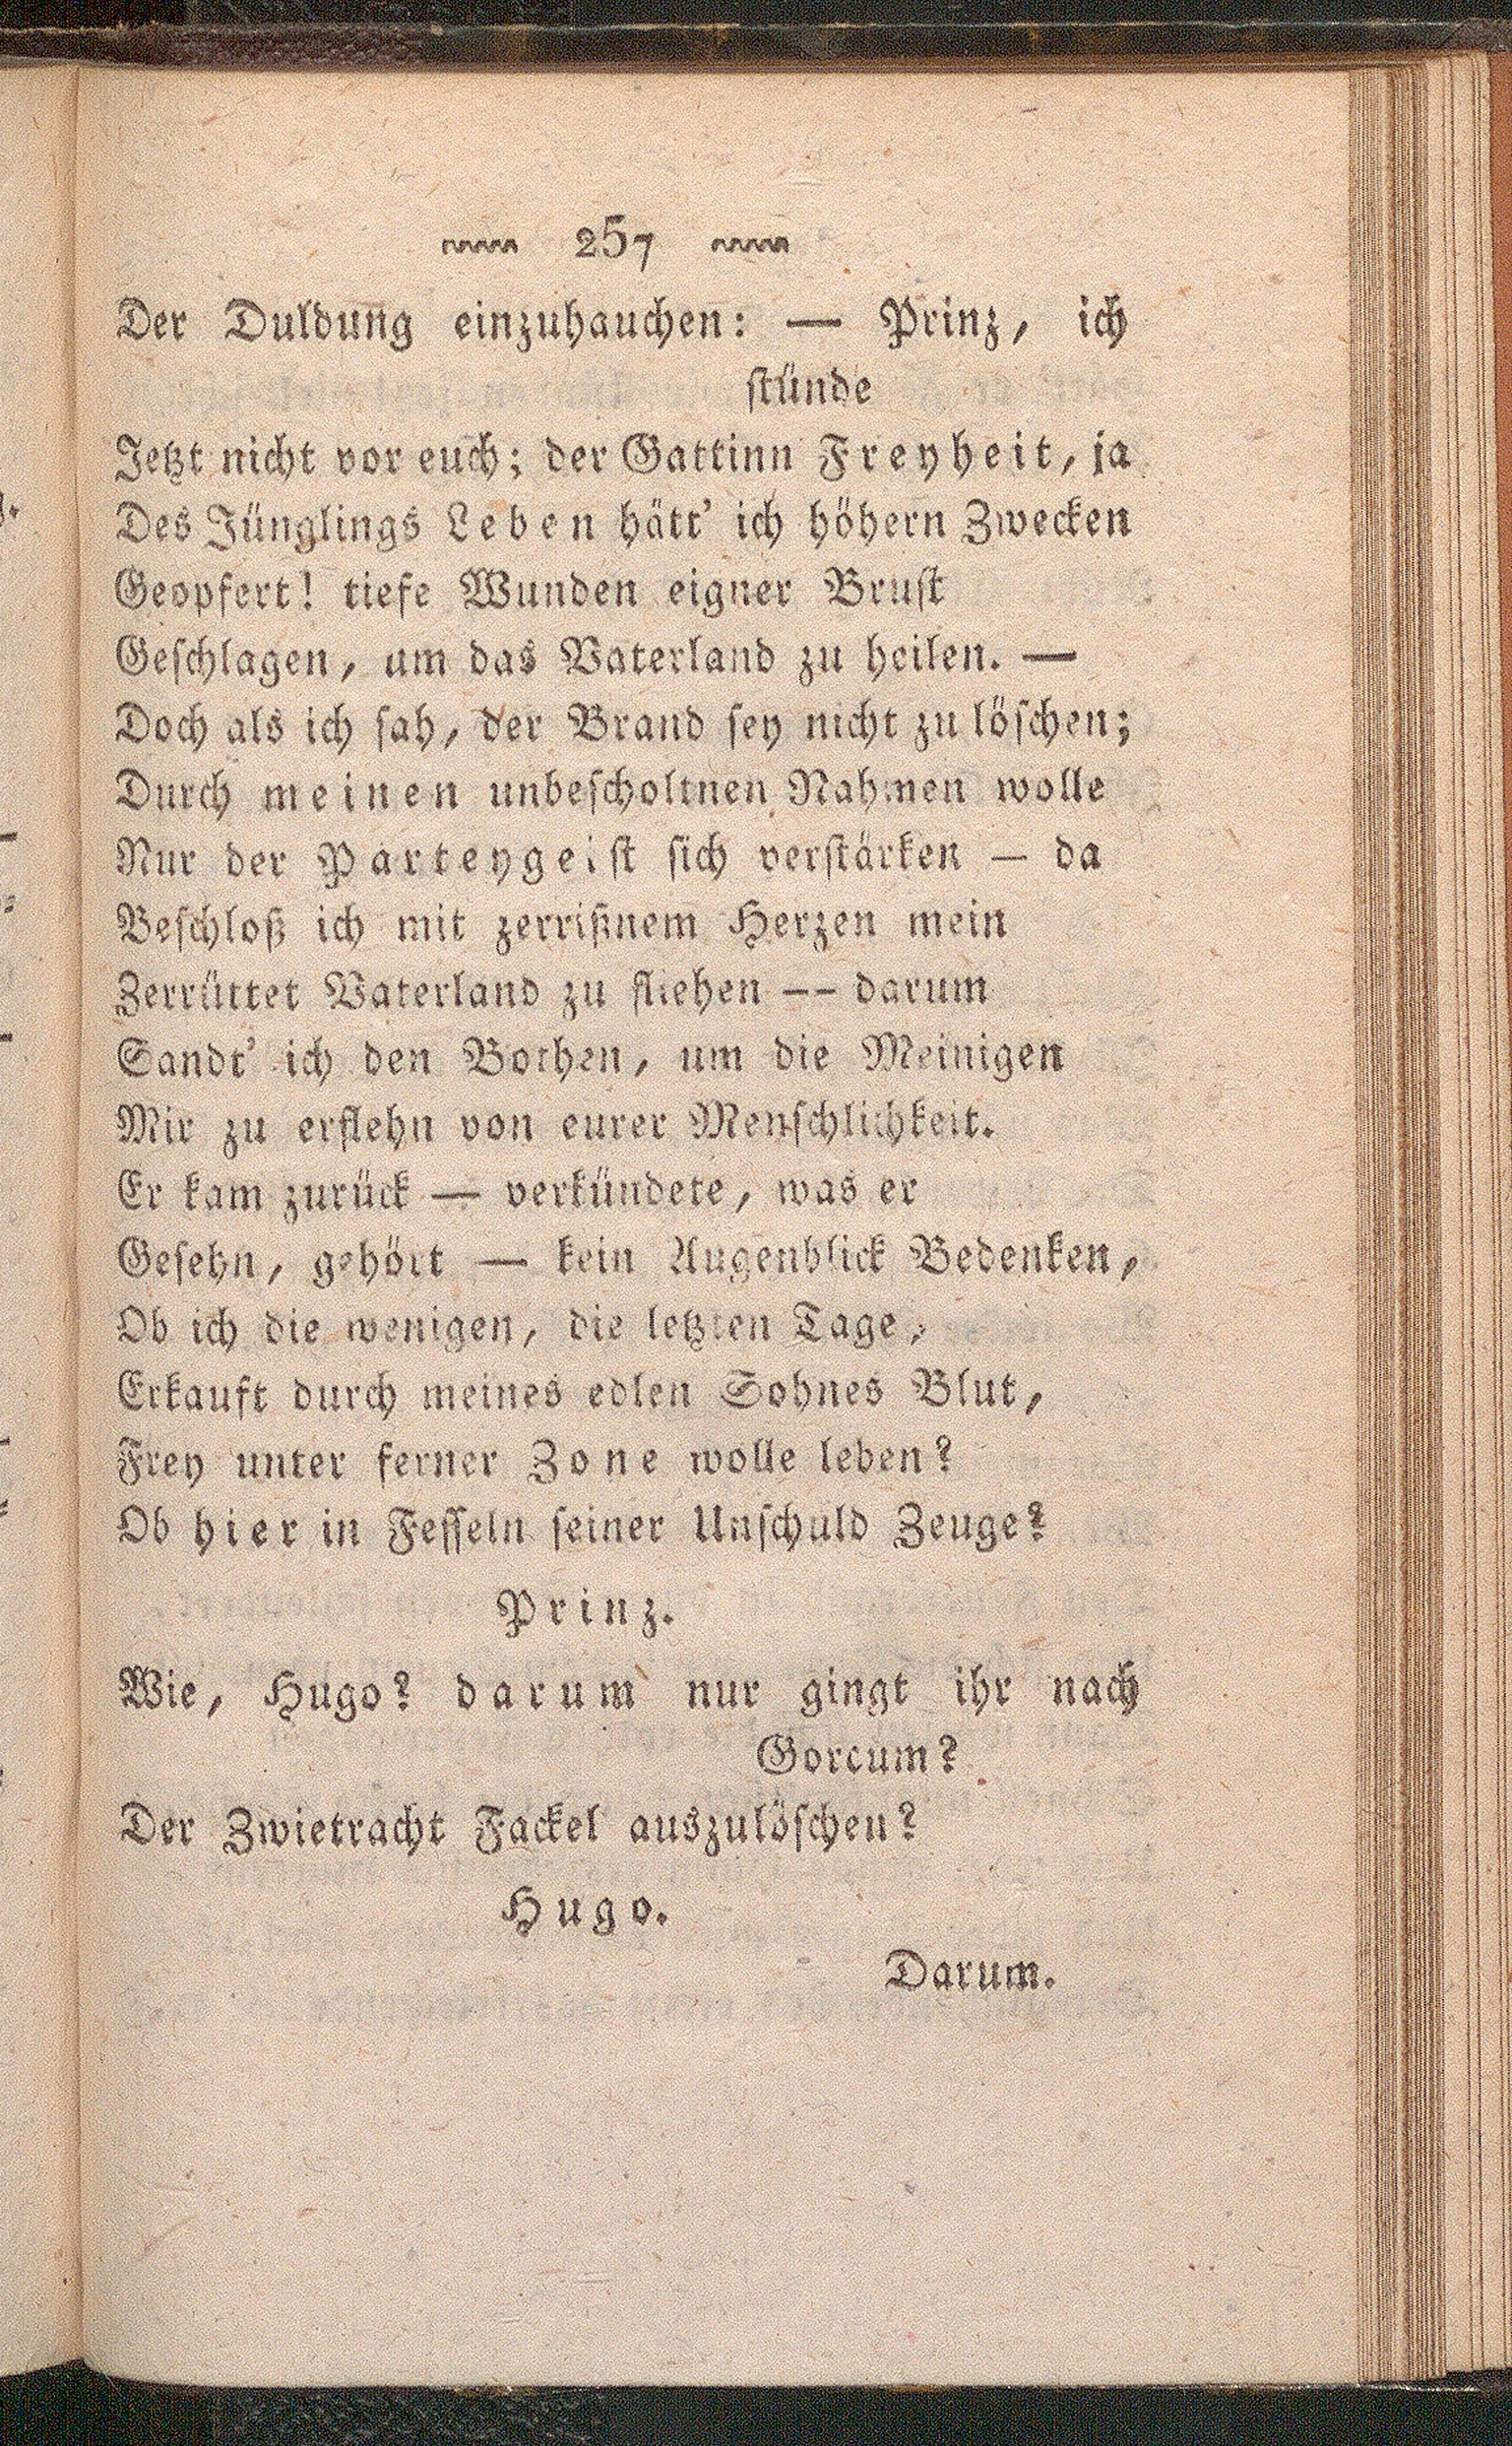 257
Der Duldung einzuhauchen: — Prinz, ich
stünde
Jetzt nicht vor euch; der Gattinn Freyheit, ja
Des Jünglings Leben hätt' ich höhern Zwecken
Geopfert! tiefe Wunden eigner Brust
Geschlagen, um das Vaterland zu heilen. —
Doch als ich sah, der Brand sey nicht zu löschen;
Durch meinen unbescholtnen Nahmen wolle
Nur der Parteygeist sich verstärken — da
Beschloß ich mit zerrißnem Herzen mein
Zerrüttet Vaterland zu fliehen –– darum
Sandt' ich den Bothen, um die Meinigen
Mir zu erflehn von eurer Menschlichkeit.
Er kam zurück — verkündete, was er
Gesehn, gehört — kein Augenblick Bedenken,
Ob ich die wenigen, die letzten Tage,
Erkauft durch meines edlen Sohnes Blut,
Frey unter ferner Zone wolle leben?
Ob hier in Fesseln seiner Unschuld Zeuge?
Prinz.
Wie, Hugo? darum nur gingt ihr nach
Gorcum?
Der Zwietracht Fackel auszulöschen?
Hugo.
Darum.